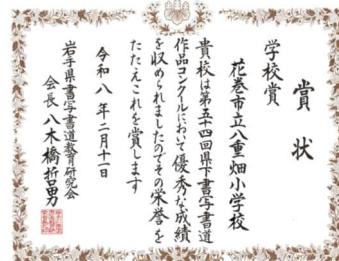 賞状
学校賞
花巻市立八重畑小学校
貴校は第五十四回県下書写書道
作品コンクールにおいて優秀な成績
を収められましたのでその栄誉を
たたえこれを賞します
令和八年二月十一日
岩手県書写書道教育研究会
会長 八木橋哲男